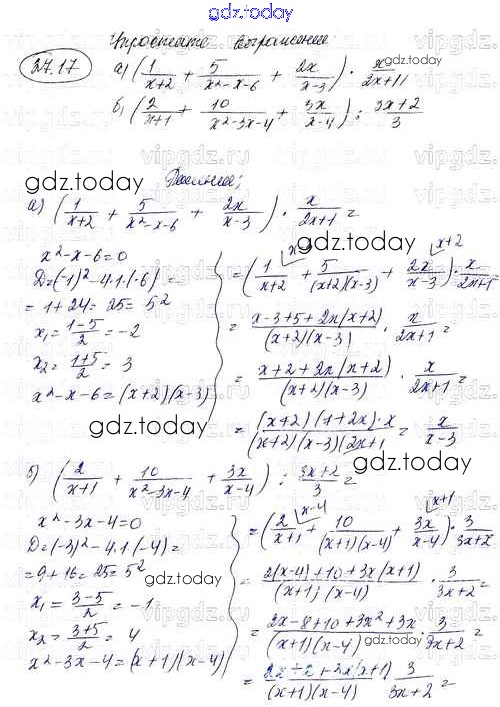 gdz.today
Упростите выражение
37.17
а) (1/(x+2) + 5/(x²-x-6) + 2x/(x-3)) · x/(2x+1)
б) (2/(x+1) + 10/(x²-3x-4) + 3x/(x-4)) : (3x+2)/3
Решение:
а) (1/(x+2) + 5/(x²-x-6) + 2x/(x-3)) · x/(2x+1) =
x²-x-6=0
D=(-1)²-4·1·(-6)=
=1+24=25=5²
x₁=(1-5)/2=-2
x₂=(1+5)/2=3
x²-x-6=(x+2)(x-3)
=(1/(x+2) + 5/((x+2)(x-3)) + 2x/(x-3)) · x/(2x+1)
= (x-3+5+2x(x+2))/((x+2)(x-3)) · x/(2x+1) =
= (x+2+2x(x+2))/((x+2)(x-3)) · x/(2x+1) =
= ((x+2)(1+2x)·x)/((x+2)(x-3)(2x+1 = x/(x-3)
б) (2/(x+1) + 10/(x²-3x-4) + 3x/(x-4)) : (3x+2)/3 =
x²-3x-4=0
D=(-3)²-4·1·(-4)=
=9+16=25=5²
x₁=(3-5)/2=-1
x₂=(3+5)/2=4
x²-3x-4=(x+1)(x-4)
=(2/(x+1) + 10/((x+1)(x-4)) + 3x/(x-4)) · 3/(3x+2
= (2(x-4)+10+3x(x+1))/((x+1)(x-4)) · 3/(3x+2) =
= (2x-8+10+3x²+3x)/((x+1)(x-4)) · 3/(3x+2) =
= (2x+2+3x(x+1))/((x+1)(x-4)) · 3/(3x+2) =